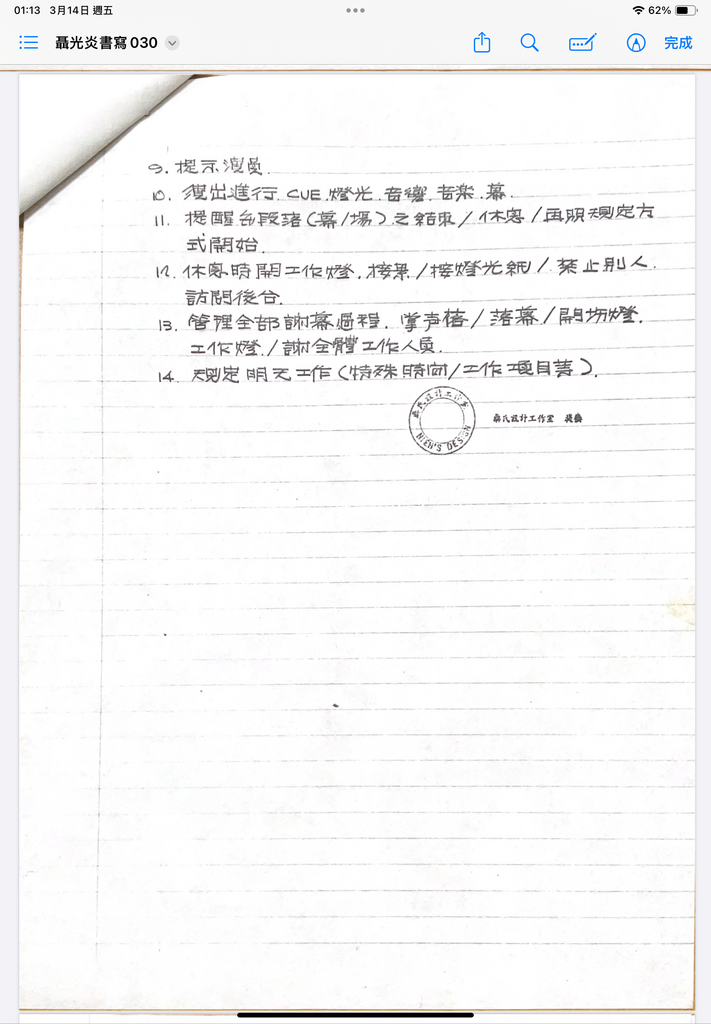 01:13 3月14日 週五
62%
聶光炎書寫 030
完成
9. 提示演員.
10. 演出進行. CUE. 燈光. 音響. 音樂. 幕.
11. 提醒各段落(幕/場)之結束/休息/再照規定方
式開始.
12. 休息時開工作燈. 換景/換燈光紙/禁止別人.
訪問後台.
13. 管理全部謝幕過程. 掌声/落幕/開場燈.
工作燈./謝全體工作人員.
14. 規定明天工作(特殊時間/工作項目等).
聶氏設計工作室
NIEH'S DESIGN
聶氏設計工作室